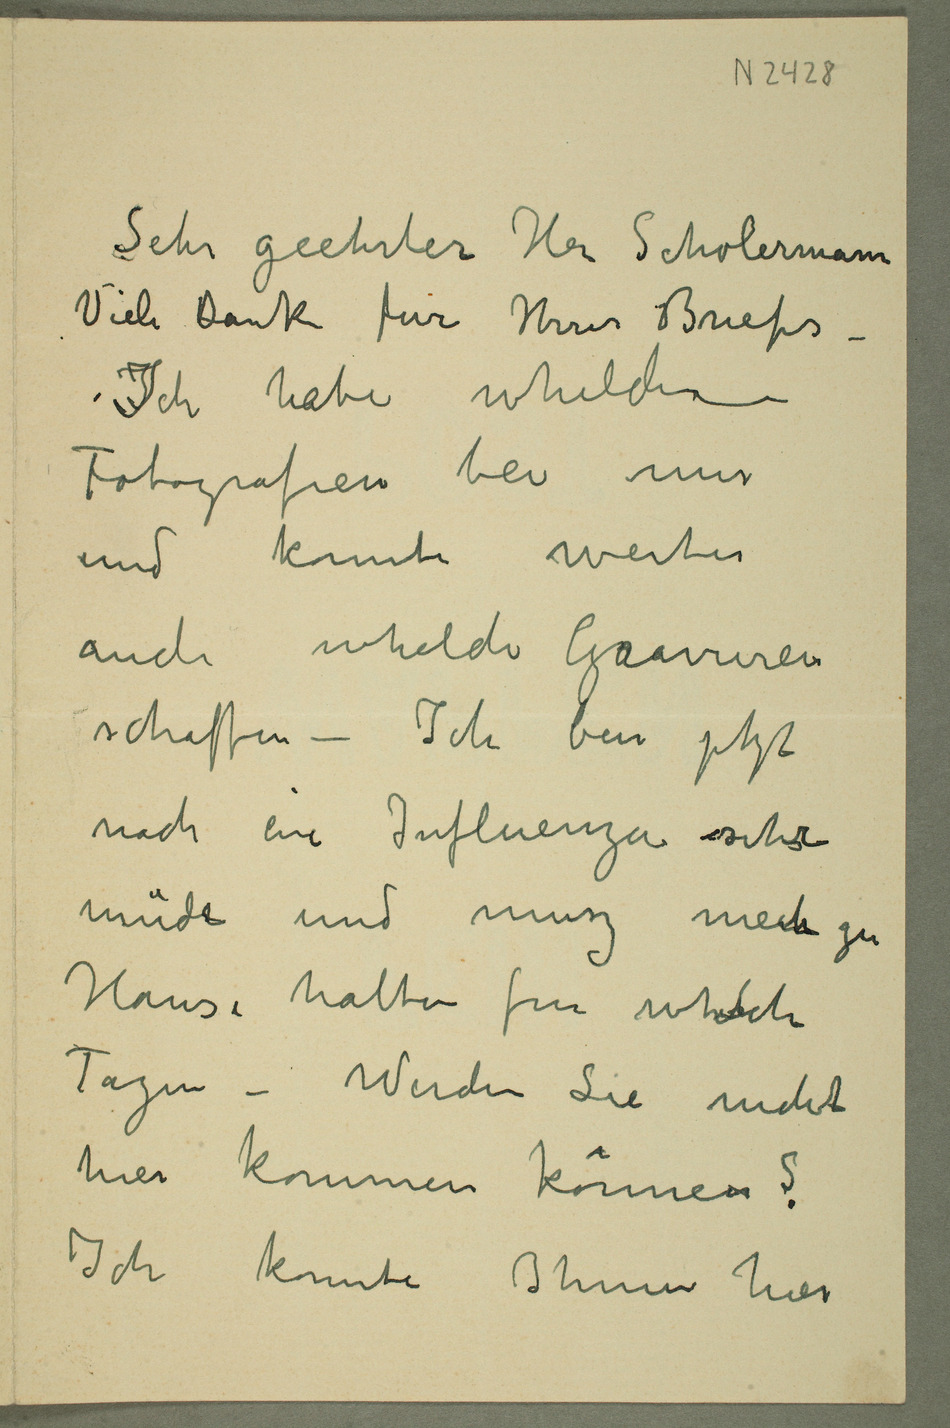 N 2428
Sehr geehrter Her Scholermann
Viele Dank für Ihres Briefes –
Ich habe
Fotografien bei mir
und konnte weiter
auch Gravuren
schaffen – Ich bin jetzt
nach eine Influenza sehr
müde und musz mich zu
Hause halten für
Tagen – Werden Sie nicht
hier kommen können?
Ich konnte Ihnen hier